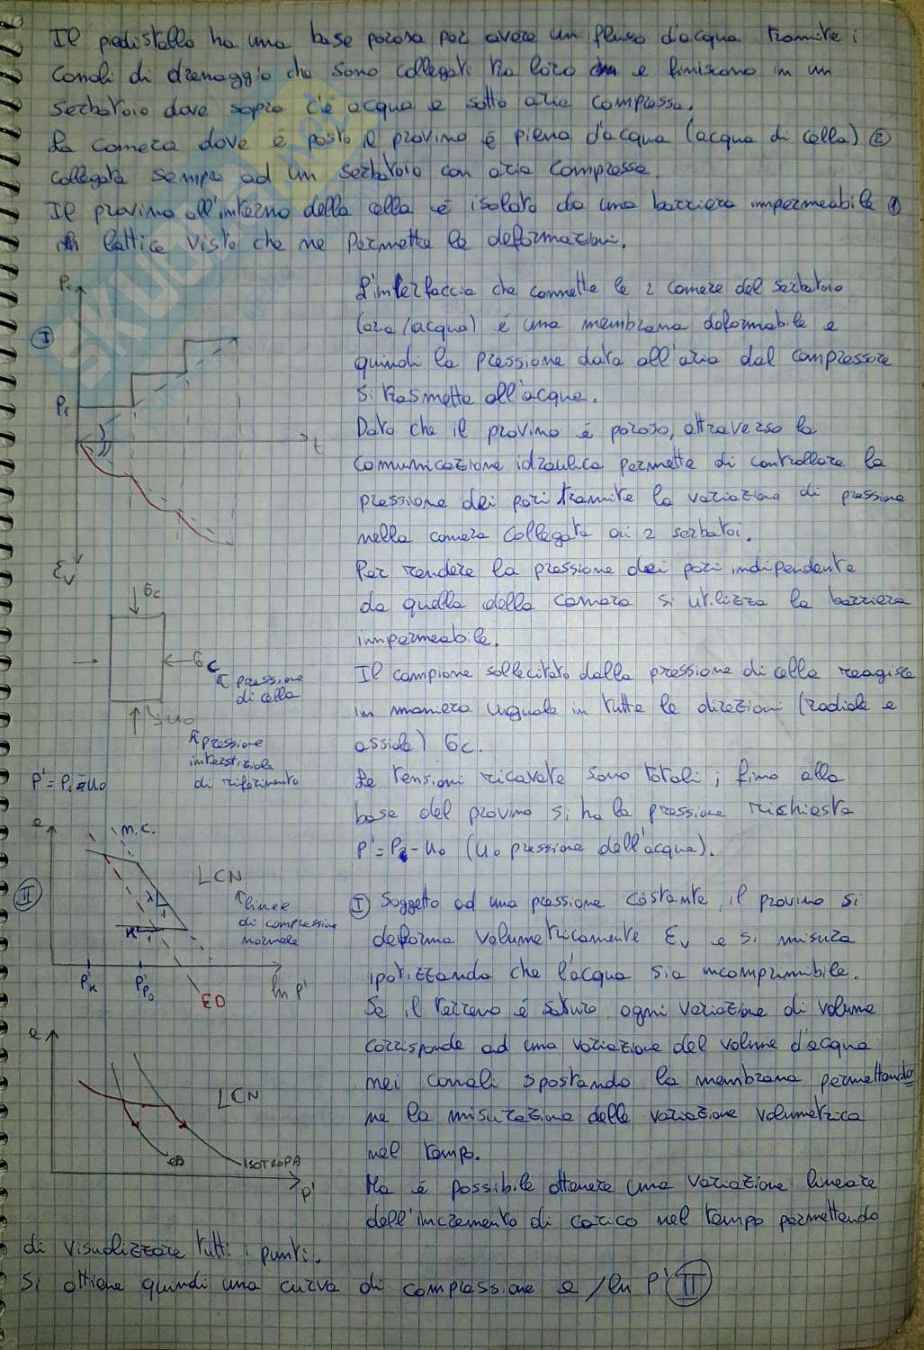 Il piedistallo ha una base porosa per avere un flusso d'acqua tramite i
canali di drenaggio che sono collegati tra loro e finiscono in un
serbatoio dove sopra c'è acqua e sotto aria compressa.
La camera dove è posto il provino è piena d'acqua (acqua di cella) ②
collegata sempre ad un serbatoio con aria compressa.
Il provino all'interno della cella è isolato da una barriera impermeabile ①
in lattice visto che ne permette le deformazioni.
Pc
I
P1
t
εv
σc
σc
pressione
di cella
u0
pressione
interstiziale
di riferimento
P'=Pi-u0
L'interfaccia che connette le 2 camere del serbatoio
(aria/acqua) è una membrana deformabile e
quindi la pressione data all'aria dal compressore
si trasmette all'acqua.
Dato che il provino è poroso, attraverso la
comunicazione idraulica permette di controllare la
pressione dei pori tramite la variazione di pressione
nella camera collegata ai 2 serbatoi.
Per rendere la pressione dei pori indipendente
da quella della camera si utilizza la barriera
impermeabile.
Il campione sollecitato dalla pressione di cella reagisce
in maniera uguale in tutte le direzioni (radiale e
assiale) σc.
Le tensioni ricavate sono totali; fino alla
base del provino si ha la pressione richiesta
P'=Pc-u0 (u0 pressione dell'acqua).
e
N.C.
II
LCN
linee
di compressione
normale
λ
1
K
1
P'K
P'P0
ln P'
ED
I Soggetto ad una pressione costante, il provino si
deforma volumetricamente εv e si misura
ipotizzando che l'acqua sia incomprimibile.
Se il terreno è saturo ogni variazione di volume
corrisponde ad una variazione del volume d'acqua
nei canali spostando la membrana permettendo
ne la misurazione della variazione volumetrica
nel tempo.
e
LCN
ED
ISOTROPA
P'
Ma è possibile ottenere una variazione lineare
dell'incremento di carico nel tempo permettendo
di visualizzare tutti i punti.
Si ottiene quindi una curva di compressione e/ln P' II